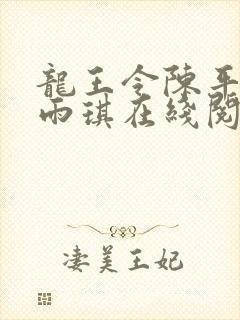 龍王令陳平
雨琪在綫閱
淒美王妃